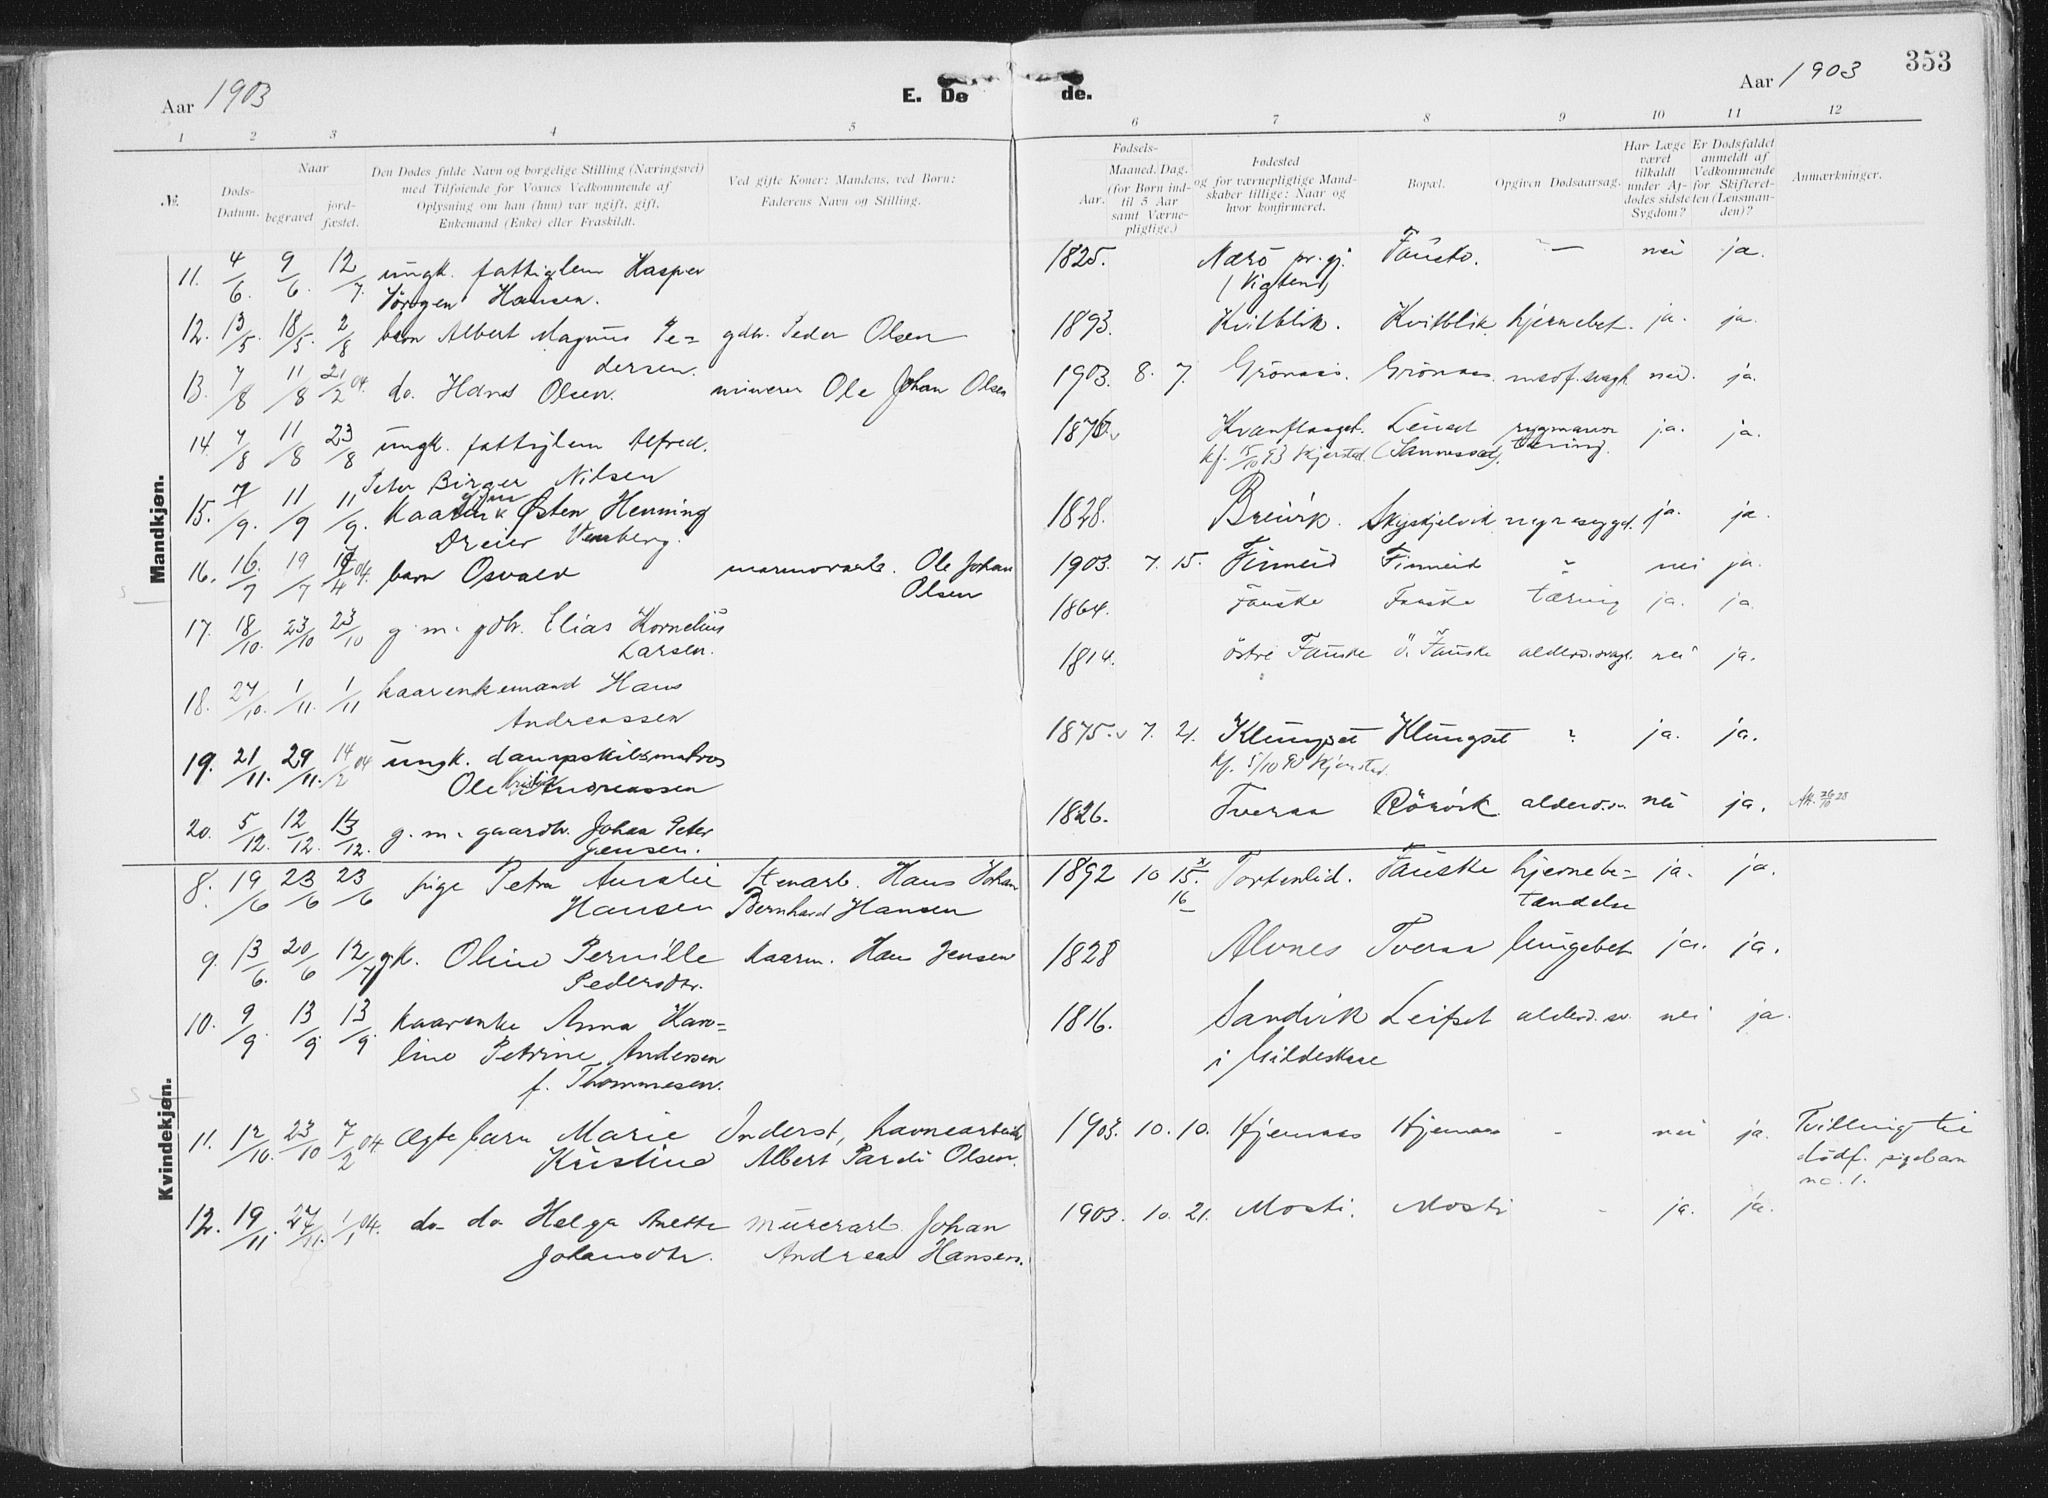 353
Aar 1903
E. De de.
Aar 1903
1 2 3 4 5 6 7 8 9 10 11 12
№.
Døds-
Datum.
Naar
begravet
jord-
fæstet.
Den Dødes fulde Navn og borgelige Stilling (Næringsvei)
med Tilføiende for Voxnes Vedkommende af
Oplysning om han (hun) var ugift, gift,
Enkemand (Enke) eller Fraskildt.
Ved gifte Koner: Mandens, ved Børn:
Faderens Navn og Stilling.
Fødsels-
Aar.
Maaned. Dag.
(for Børn ind-
til 5 Aar
samt Værne-
pligtige.)
Fødested
og for værnepligtige Mand-
skaber tillige: Naar og
hvor konfirmeret.
Bopæl.
Opgiven Dødsaarsag.
Har Læge
været
tilkaldt
under Af-
dødes sidste
Sygdom?
Er Dødsfaldet
anmeldt af
Vedkommende
for Skifteret-
ten (Lensman-
den)?
Anmærkninger.
Mandkjøn.
11. 4/6. 9/6. 12/7. ungk. fattiglem Kasper 1825. Nærö pr.gj. Fauske. — nei ja.
Jörgen Hansen. (Vigten)
12. 13/5. 18/5. 2/8 barn Albert Magnus Pe= gdbr. Peder Olsen 1893. Kvitblik. Kvitblik. hjernebet. ja. ja.
dersen.
13. 7/8 11/8 21/2 04. do. Hans Olsen. minerer Ole Johan Olsen 1903. 8. 7. Grönaas. Grönaas. medf. svagh. nei. ja.
14. 7/8 11/8 23/8 ungk. fattiglem Alfred. 1876 Kvanflaaget. Leivset rygmarvs ja. ja.
Peter Birger Nilsen kf. 15/10 93 Kjerstad. tæring.
15. 7/9. 11/9 11/9. Kaarm Östen Henning 1828. Breivik. Skyskjelvik ja. ja.
Dreier Wensberg.
16. 16/7 19/7 17/4 04. barn Osvald marmorarb. Ole Johan 1903. 7. 15. Finneid Finneid nei ja.
Olsen
17. 18/10. 23/10 23/10 g. m. gdbr. Elias Kornelius 1864. Fauske Fauske tæring ja. ja.
Larsen.
18. 27/10. 1/11. 1/11 kaarenkemand Hans 1814. östre Fauske ö. Fauske alderd.svagh. nei ja.
Andreassen
19. 21/11. 29/11. 14/2 04 ungk. dampskibsmatros 1875. 7. 21. Klungset Klungset ? ja. ja.
Ole Kristian Andreassen kf. 5/10 90 Kjerstad.
20. 5/12. 12/12. 13/12. g. m. gaardbr. Johan Peter 1826. Tveraa Rörvik alderd.sv. nei ja. Att. 26/10 28
Jensen.
Kvindekjøn.
8. 19/6 23/6 23/6 pige Petra Amalie Stenarb. Hans Johan 1892 10 15. Tortenlid. Fauske hjernebe= ja. ja.
Hansen Bernhard Hansen 16 tændelse
9. 13/6. 20/6 12/7 gk. Oline Pernille kaarm. Hans Jensen 1828 Alvnes Tveraa lungebet ja. ja.
Pedersdtr.
10. 9/9. 13/9 13/9. kaarenke Anna Karo= 1816. Sandvik Leifset alderd. sv. nei ja.
line Petrine Andersen i Gildeskaae
f. Thommesen.
11. 12/10. 23/10 7/2 04. Ægte barn Marie Inderst, havnearbeider 1903. 10. 10. Hjemaas Hjemaas - nei ja. Tvilling til
Kristine Albert Pareli Olsen. dödf. pigebarn
no. 1.
12. 19/11. 27/11. 1/1 04. do- do Helga Anette murerarb Johan 1903. 10. 21. Mosti. Mosti - ja. ja.
Johansdtr. Andreas Hansen.